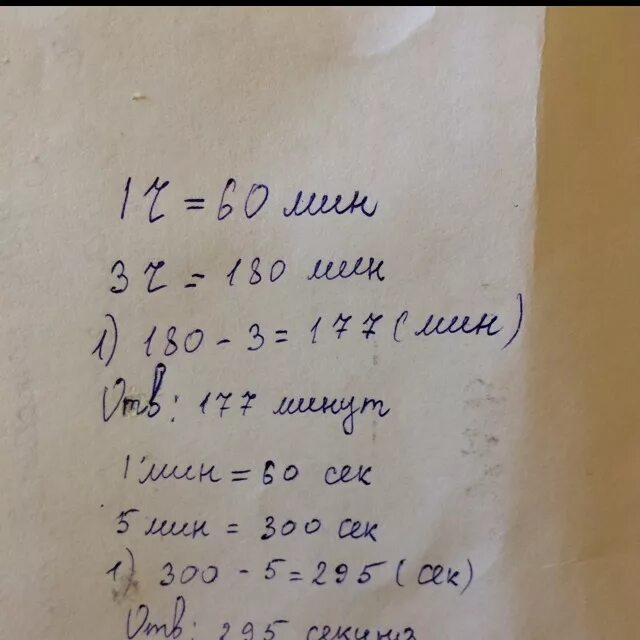 1 ч = 60 мин
3 ч = 180 мин
1) 180 - 3 = 177 (мин)
Отв: 177 минут
1 мин = 60 сек
5 мин = 300 сек
1) 300 - 5 = 295 (сек)
Отв: 295 секунд